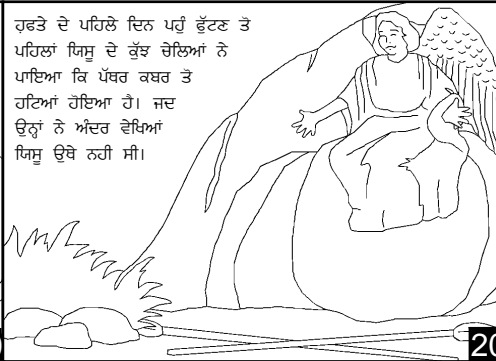 ਹਫਤੇ ਦੇ ਪਹਿਲੇ ਦਿਨ ਪਹੁੰ ਫੁੱਟਣ ਤੋ
ਪਹਿਲਾਂ ਯਿਸੂ ਦੇ ਕੁੱਝ ਚੇਲਿਆਂ ਨੇ
ਪਾਇਆ ਕਿ ਪੱਥਰ ਕਬਰ ਤੋ
ਹਟਿਆਂ ਹੋਇਆ ਹੈ। ਜਦ
ਉਨ੍ਹਾਂ ਨੇ ਅੰਦਰ ਵੇਖਿਆਂ
ਯਿਸੂ ਉਥੇ ਨਹੀ ਸੀ।